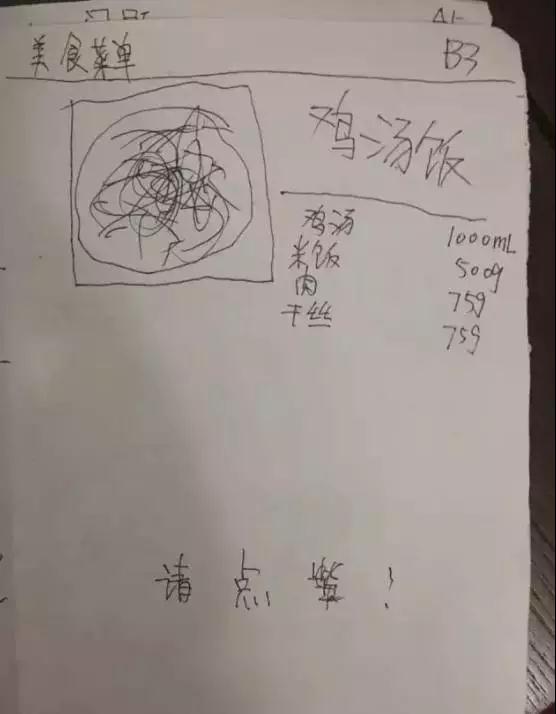 美食菜单 B3
鸡汤饭
鸡汤 1000mL
米饭 500g
肉 75g
干丝 75g
请点